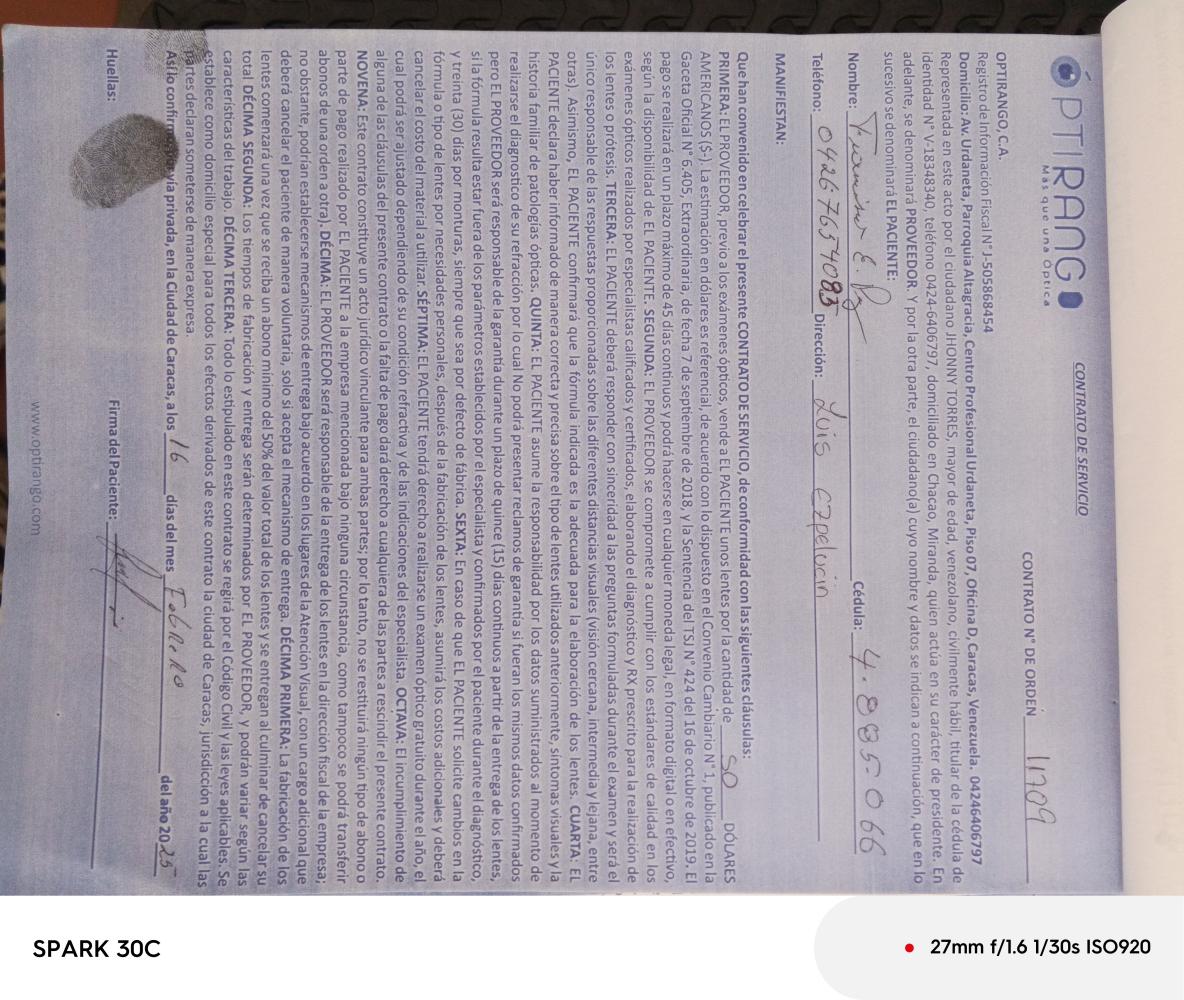 ÓPTIRANGO
Más que una Óptica
CONTRATO DE SERVICIO
CONTRATO N° DE ORDEN 11709
OPTIRANGO, C.A.
Registro de Información Fiscal N° J-505868454
Domicilio: Av. Urdaneta, Parroquia Altagracia, Centro Profesional Urdaneta, Piso 07, Oficina D, Caracas, Venezuela. 04246406797
Representada en este acto por el ciudadano JHONNY TORRES, mayor de edad, venezolano, civilmente hábil, titular de la cédula de
identidad N° V-18348340, teléfono 0424-6406797, domiciliado en Chacao, Miranda, quien actúa en su carácter de presidente. En
adelante, se denominará PROVEEDOR. Y por la otra parte, el ciudadano(a) cuyo nombre y datos se indican a continuación, que en lo
sucesivo se denominará EL PACIENTE:
Nombre: Cédula: 4.885.066
Teléfono: 04267654083 Dirección: Luis
MANIFIESTAN:
Que han convenido en celebrar el presente CONTRATO DE SERVICIO, de conformidad con las siguientes cláusulas:
PRIMERA: EL PROVEEDOR, previo a los exámenes ópticos, vende a EL PACIENTE unos lentes por la cantidad de 50 DÓLARES
AMERICANOS ($-). La estimación en dólares es referencial, de acuerdo con lo dispuesto en el Convenio Cambiario N° 1, publicado en la
Gaceta Oficial N° 6.405, Extraordinaria, de fecha 7 de septiembre de 2018, y la Sentencia del TSJ N° 424 del 16 de octubre de 2019. El
pago se realizará en un plazo máximo de 45 días continuos y podrá hacerse en cualquier moneda legal, en formato digital o en efectivo,
según la disponibilidad de EL PACIENTE. SEGUNDA: EL PROVEEDOR se compromete a cumplir con los estándares de calidad en los
exámenes ópticos realizados por especialistas calificados y certificados, elaborando el diagnóstico y RX prescrito para la realización de
los lentes o prótesis. TERCERA: EL PACIENTE deberá responder con sinceridad a las preguntas formuladas durante el examen y será el
único responsable de las respuestas proporcionadas sobre las diferentes distancias visuales (visión cercana, intermedia y lejana, entre
otras). Asimismo, EL PACIENTE confirmará que la fórmula indicada es la adecuada para la elaboración de los lentes. CUARTA: EL
PACIENTE declara haber informado de manera correcta y precisa sobre el tipo de lentes utilizados anteriormente, síntomas visuales y la
historia familiar de patologías ópticas. QUINTA: EL PACIENTE asume la responsabilidad por los datos suministrados al momento de
realizarse el diagnostico de su refracción por lo cual No podrá presentar reclamos de garantía si fueran los mismos datos confirmados
pero EL PROVEEDOR será responsable de la garantía durante un plazo de quince (15) días continuos a partir de la entrega de los lentes,
si la fórmula resulta estar fuera de los parámetros establecidos por el especialista y confirmados por el paciente durante el diagnóstico,
y treinta (30) días por monturas, siempre que sea por defecto de fábrica. SEXTA: En caso de que EL PACIENTE solicite cambios en la
fórmula o tipo de lentes por necesidades personales, después de la fabricación de los lentes, asumirá los costos adicionales y deberá
cancelar el costo del material a utilizar. SÉPTIMA: EL PACIENTE tendrá derecho a realizarse un examen óptico gratuito durante el año, el
cual podrá ser ajustado dependiendo de su condición refractiva y de las indicaciones del especialista. OCTAVA: El incumplimiento de
alguna de las cláusulas del presente contrato o la falta de pago dará derecho a cualquiera de las partes a rescindir el presente contrato.
NOVENA: Este contrato constituye un acto jurídico vinculante para ambas partes; por lo tanto, no se restituirá ningún tipo de abono o
parte de pago realizado por EL PACIENTE a la empresa mencionada bajo ninguna circunstancia, como tampoco se podrá transferir
abonos de una orden a otra). DÉCIMA: EL PROVEEDOR será responsable de la entrega de los lentes en la dirección fiscal de la empresa;
no obstante, podrían establecerse mecanismos de entrega bajo acuerdo en los lugares de la Atención Visual, con un cargo adicional que
deberá cancelar el paciente de manera voluntaria, solo si acepta el mecanismo de entrega. DÉCIMA PRIMERA: La fabricación de los
lentes comenzará una vez que se reciba un abono mínimo del 50% del valor total de los lentes y se entregan al culminar de cancelar su
total DÉCIMA SEGUNDA: Los tiempos de fabricación y entrega serán determinados por EL PROVEEDOR, y podrán variar según las
características del trabajo. DÉCIMA TERCERA: Todo lo estipulado en este contrato se regirá por el Código Civil y las leyes aplicables. Se
establece como domicilio especial para todos los efectos derivados de este contrato la ciudad de Caracas, jurisdicción a la cual las
partes declaran someterse de manera expresa.
Así lo confirm vía privada, en la Ciudad de Caracas, a los 16 días del mes Febrero del año 2025
Huellas: Firma del Paciente:
www.optirango.com
SPARK 30C
27mm f/1.6 1/30s ISO920